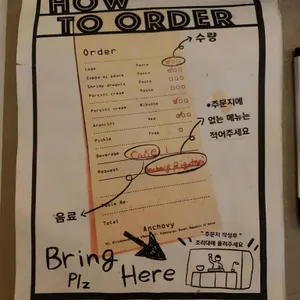 HOW
TO ORDER
수량
Order
Pasta
Pasta
Shrimp arugula Pasta
Porcini cream Pasta
Porcini cream Risotto
Arancini
Pickle Free
Beverage Coke
Request
*주문지에
없는 메뉴는
적어주세요
Table No.
Total
음료
Anchovy
Bring
Plz
Here
"주문지 작성후"
조리대에 올려주세요